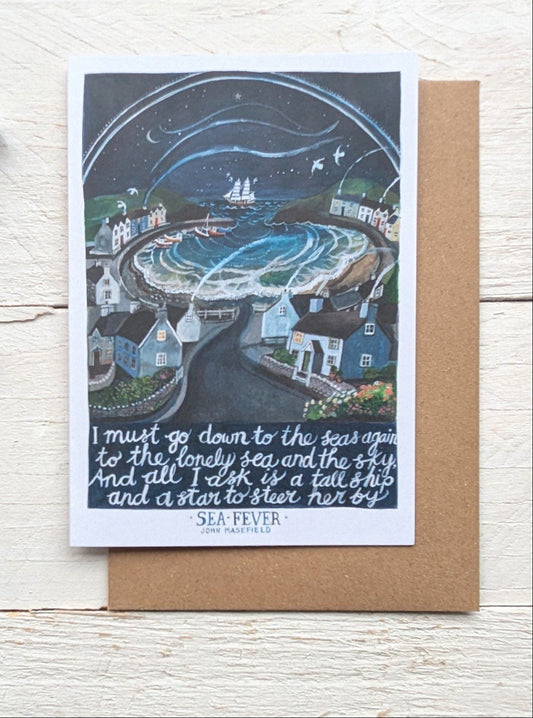 I must go down to the seas again
to the lonely sea and the sky.
And all I ask is a tall ship
and a star to steer her by
· SEA · FEVER ·
JOHN MASEFIELD